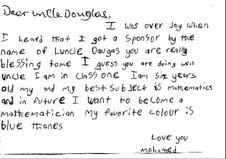 Dear uncle Douglas,
I was over Joy when
I heard that I got a Sponsor by the
name of Luncle Daugas you are really
blessing tome I guess you are doing well
uncle I am in class one I am six years
old my nd my best subject is mathematics
and in future I want to become a
mathematician My favorite colour is
blue thanes
Love you
mohamed